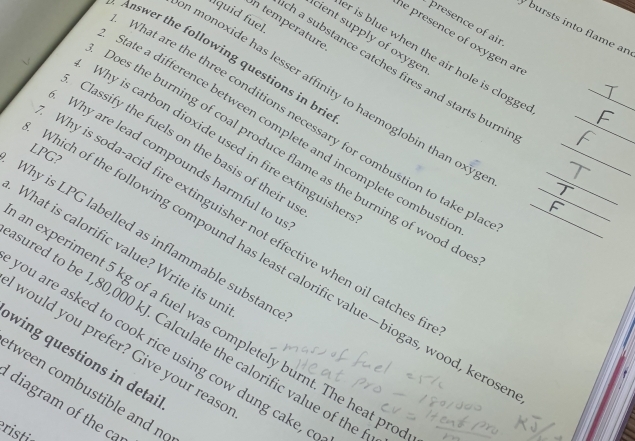 y bursts into flame and
presence of air.
he presence of oxygen are
ner is blue when the air hole is clogged.
icient supply of oxygen.
uch a substance catches fires and starts burning
n temperature.
iquid fuel.
bon monoxide has lesser affinity to haemoglobin than oxygen.
Answer the following questions in brief.
1. What are the three conditions necessary for combustion to take place?
2. State a difference between complete and incomplete combustion.
3. Does the burning of coal produce flame as the burning of wood does?
4. Why is carbon dioxide used in fire extinguishers?
5. Classify the fuels on the basis of their use.
6. Why are lead compounds harmful to us?
7. Why is soda-acid fire extinguisher not effective when oil catches fire?
8. Which of the following compound has least calorific value—biogas, wood, kerosene,
LPG?
9. Why is LPG labelled as inflammable substance?
a. What is calorific value? Write its unit.
In an experiment 5 kg of a fuel was completely burnt. The heat produ
easured to be 1,80,000 kJ. Calculate the calorific value of the fue
se you are asked to cook rice using cow dung cake, coal
el would you prefer? Give your reason.
lowing questions in detail.
between combustible and non
d diagram of the can
eristi
T
F
F
T
T
F
- mass of fuel
Heat pro - 180,000
cv = Heat pro
KJ/